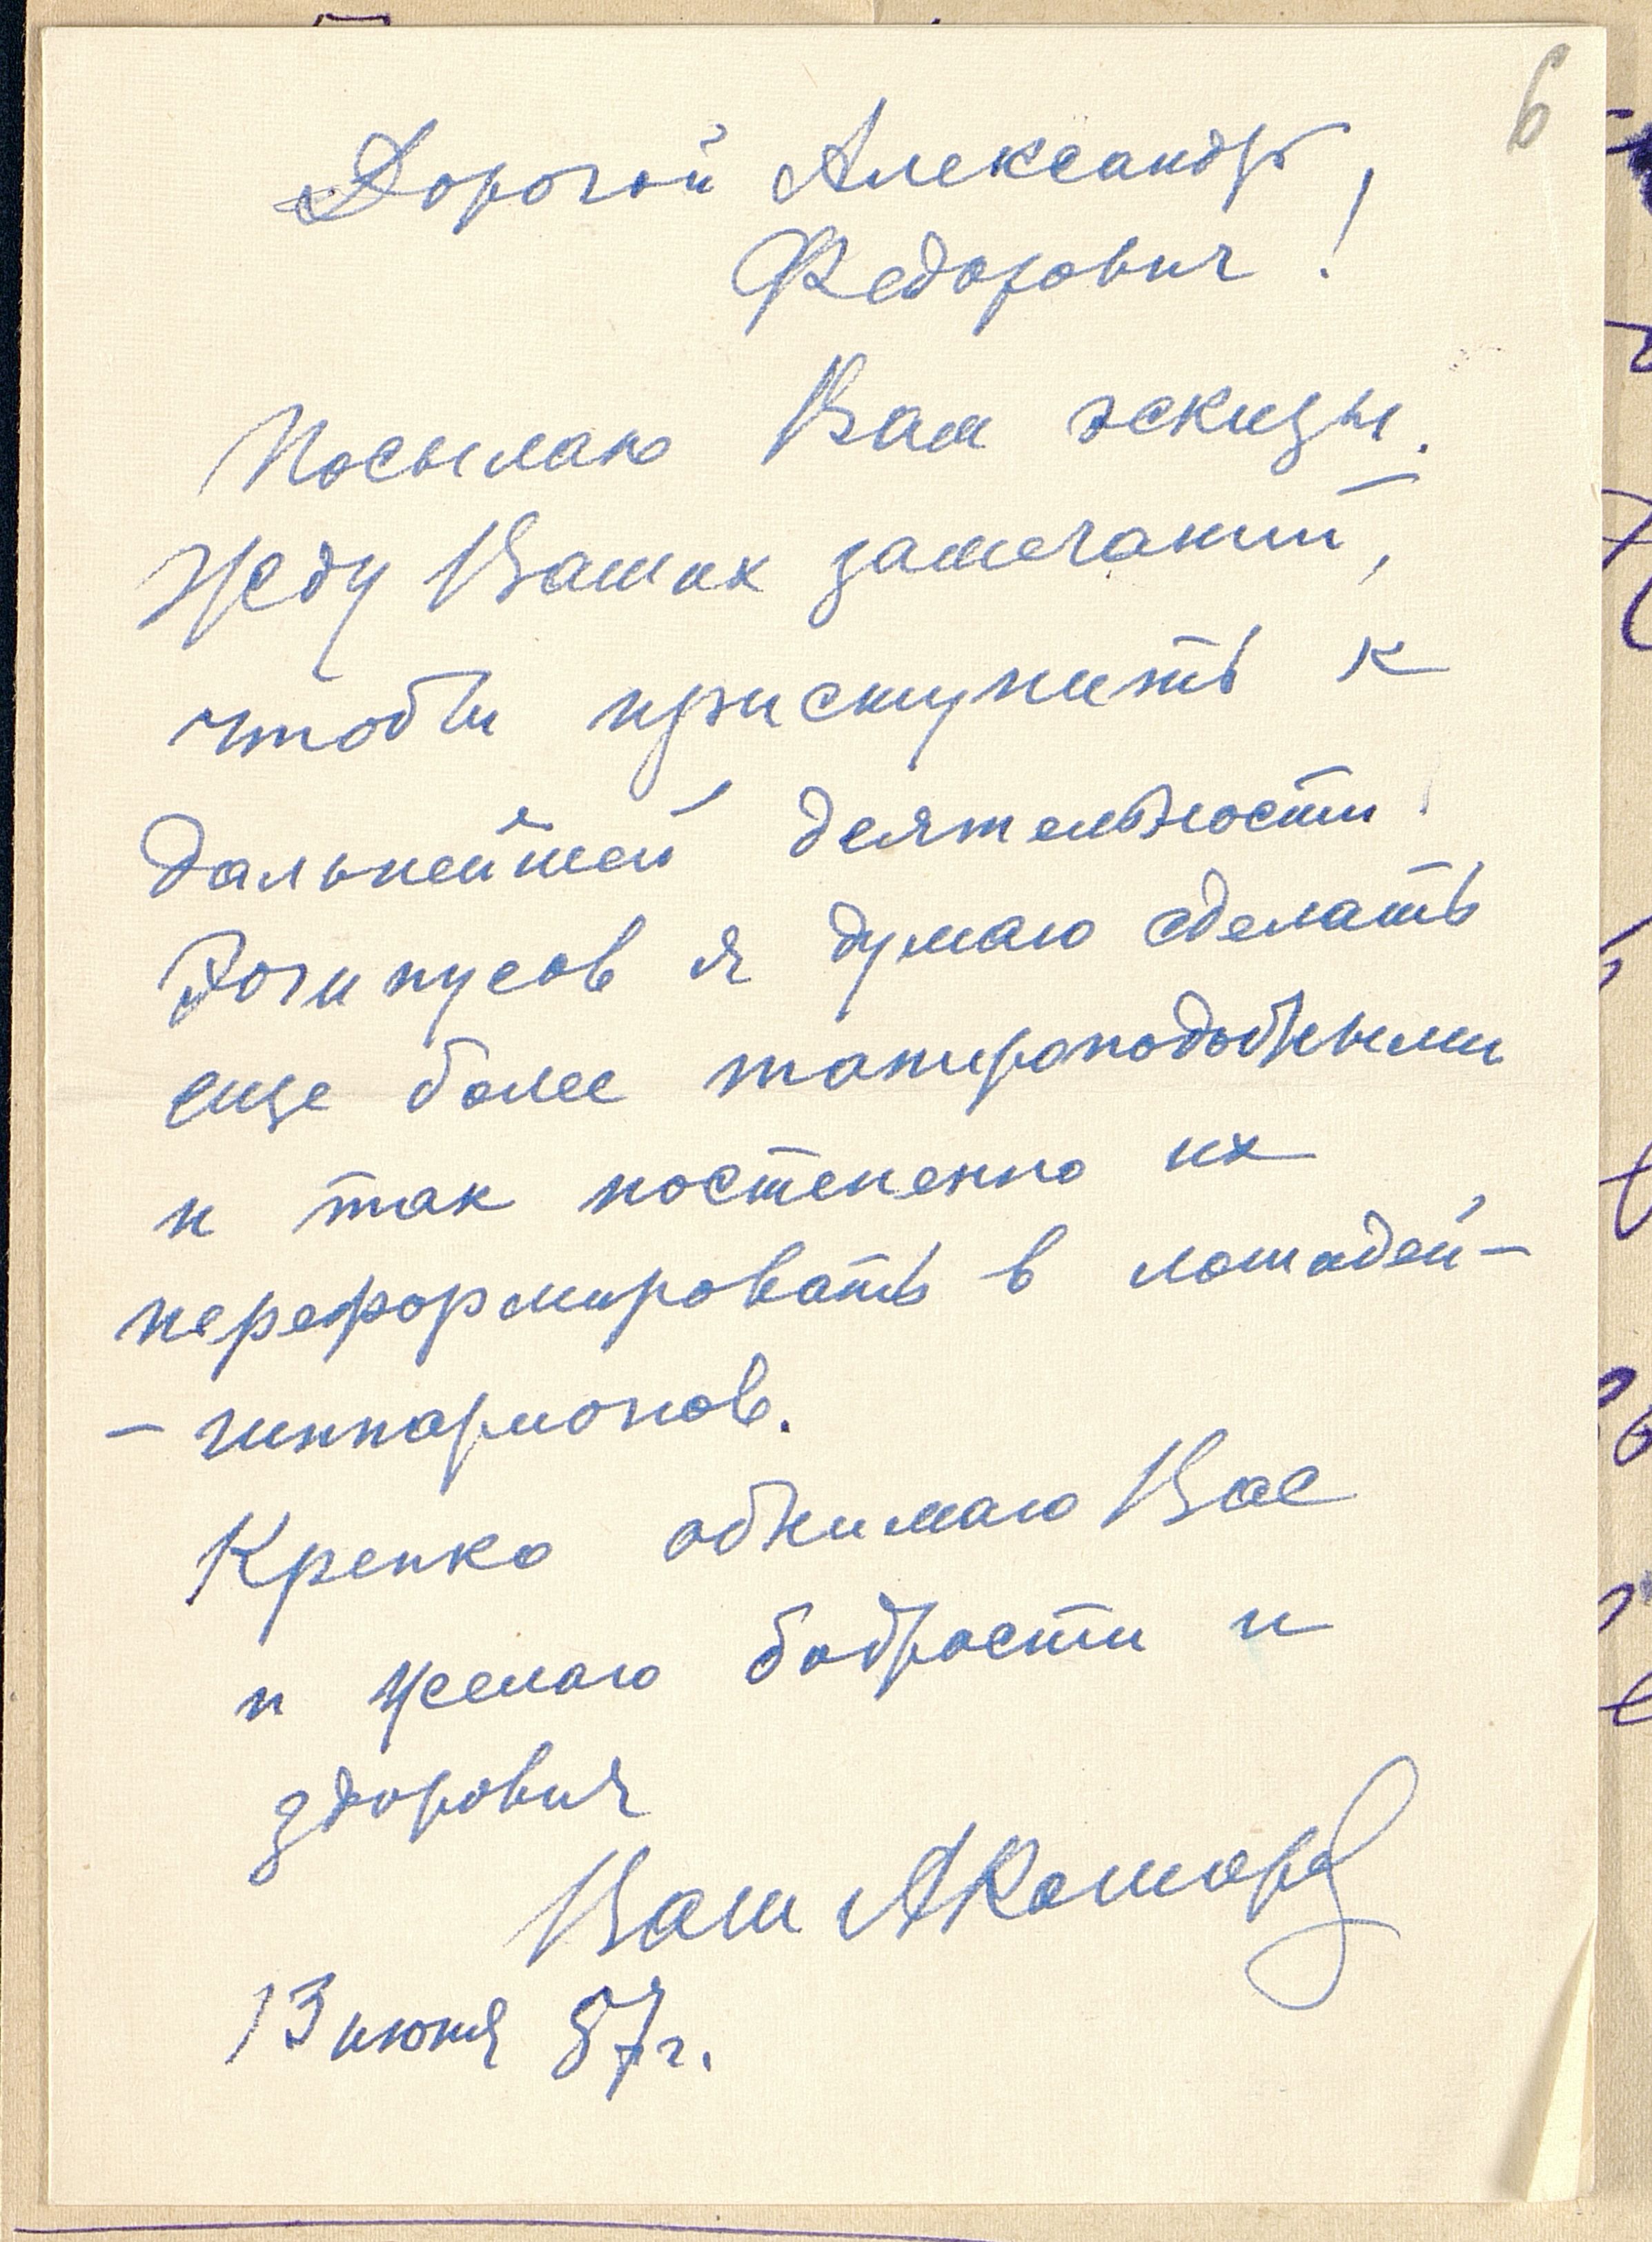 6
Дорогой Александр
Федорович!
Посылаю Вам эскизы.
Жду Ваших замечаний,
чтобы приступить к
дальнейшей деятельности!
я думаю сделать
еще более тапироподобными
и так постепенно их
переформировать в лошадей-
-гиппарионов.
Крепко обнимаю Вас
и желаю бодрости и
здоровия
Ваш
13 июня 57г.